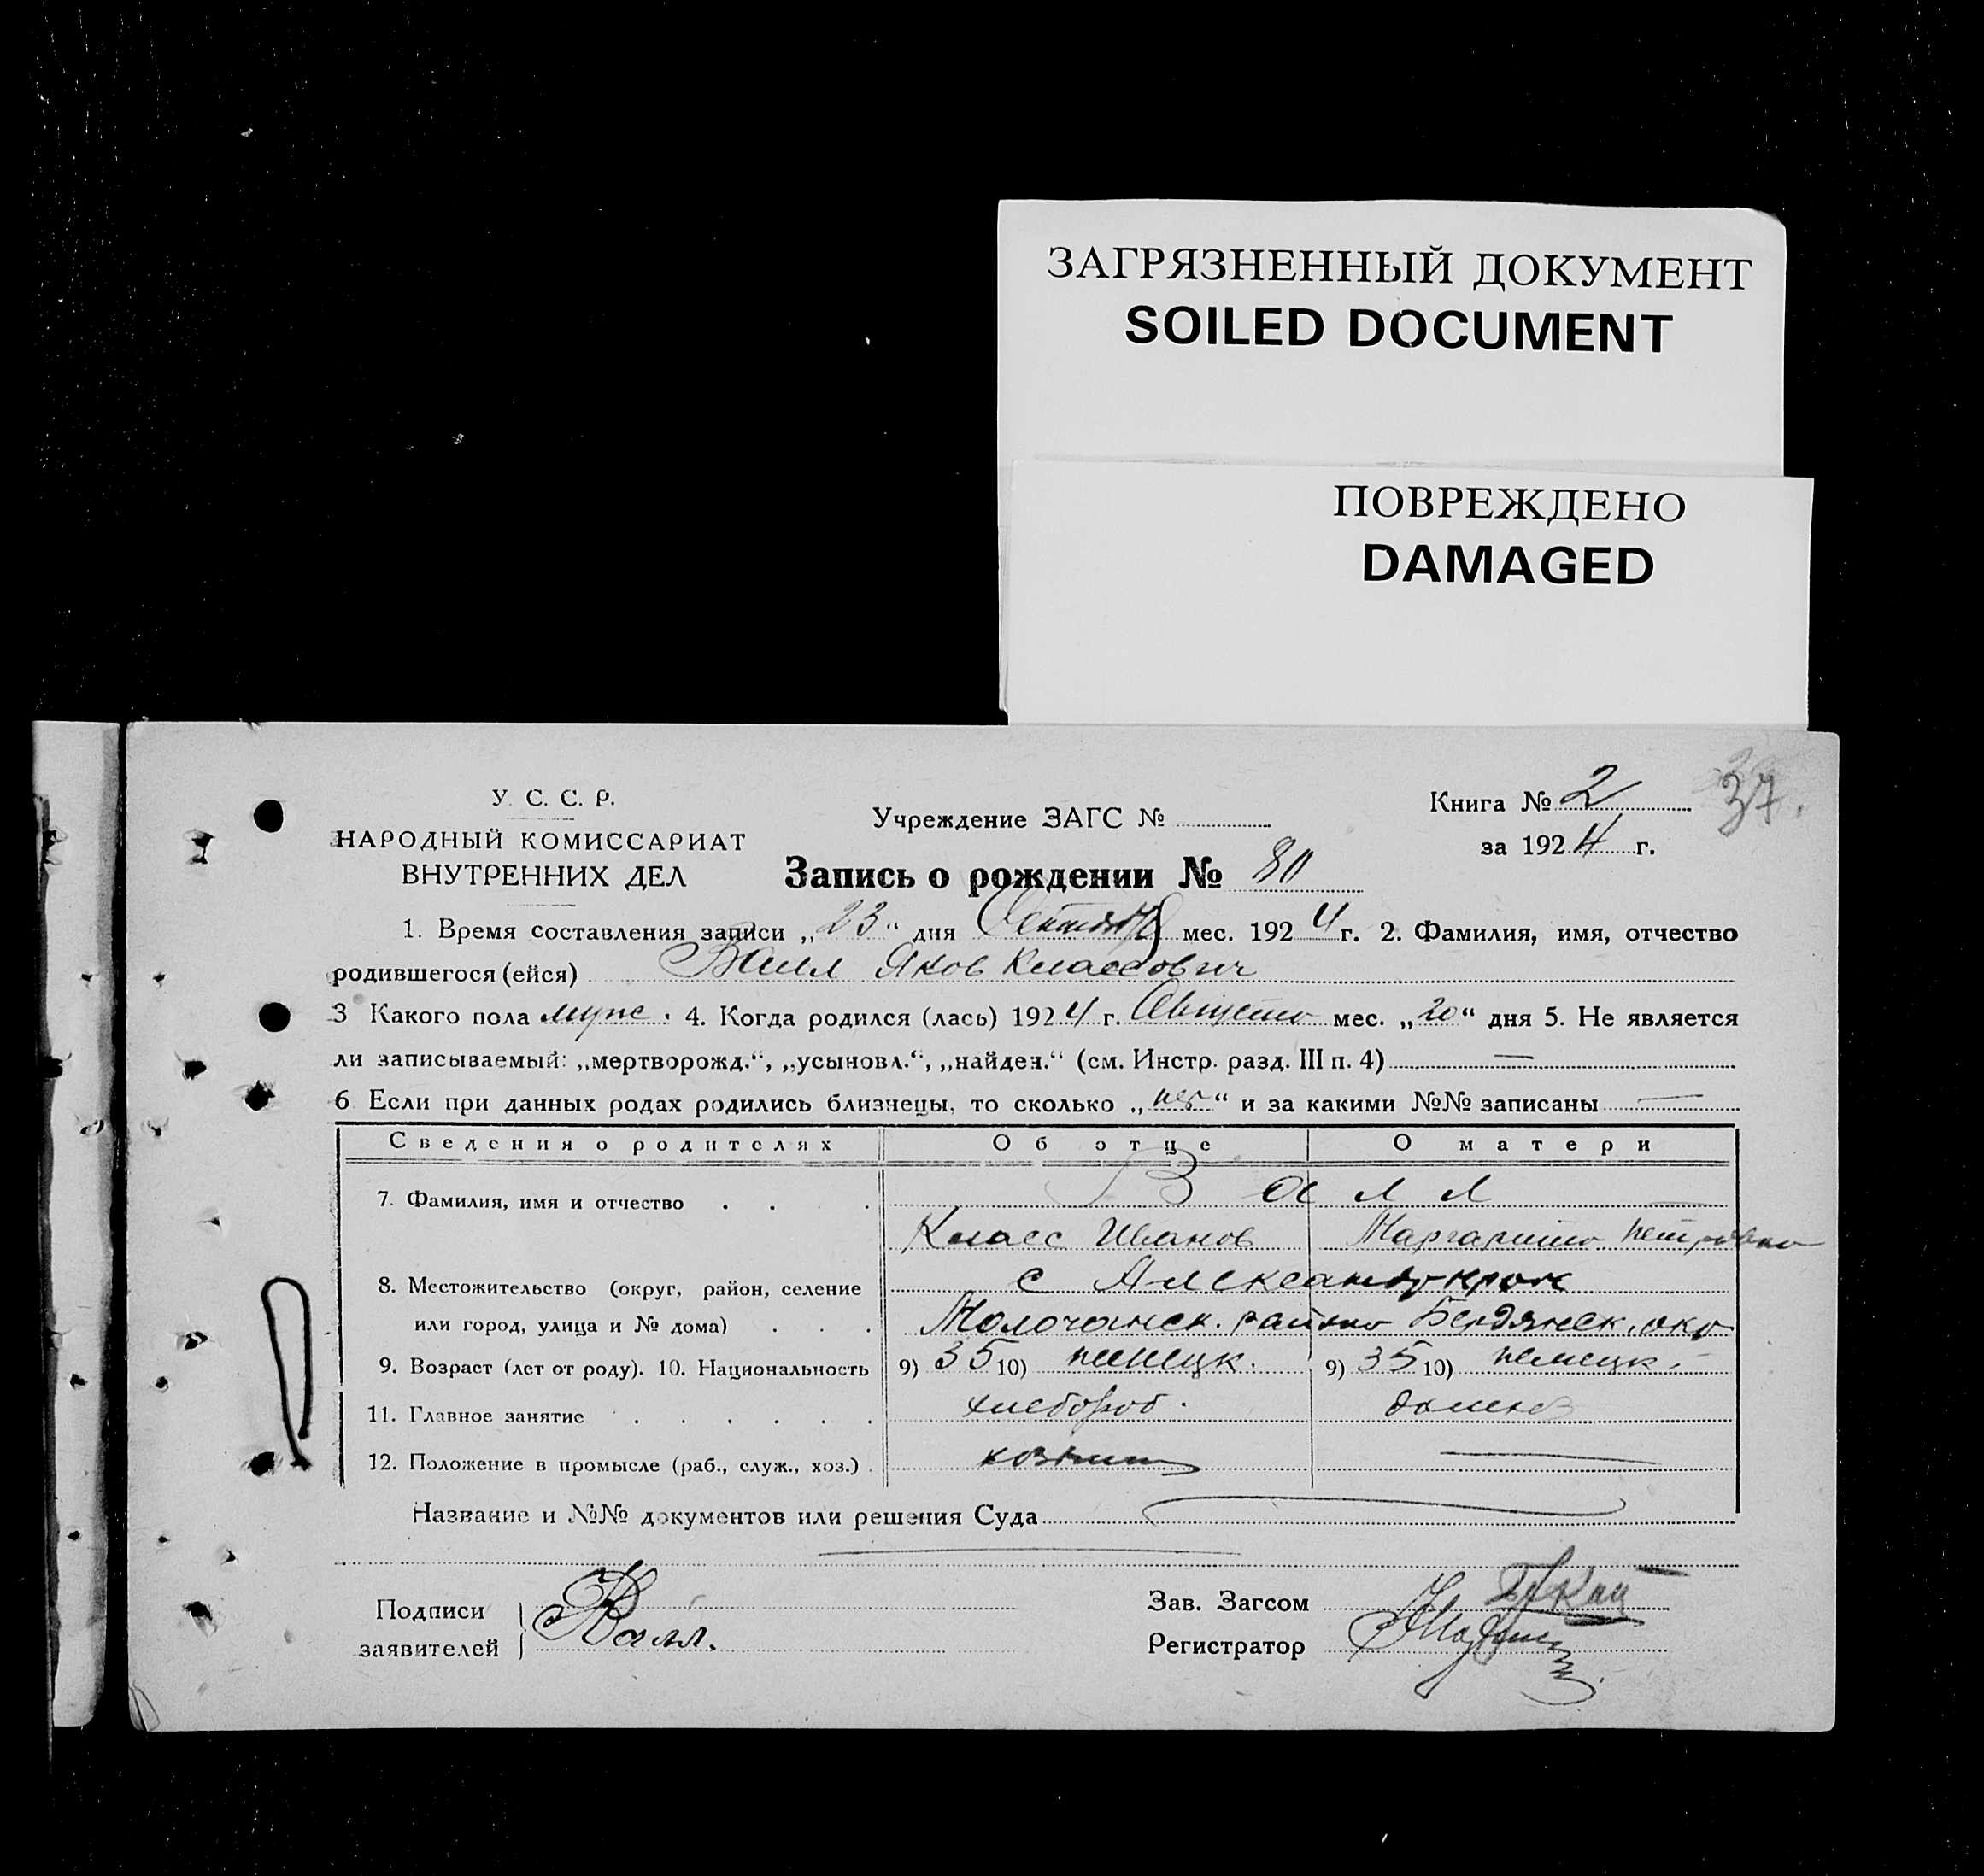 ЗАГРЯЗНЕННЫЙ ДОКУМЕНТ
SOILED DOCUMENT
ПОВРЕЖДЕНО
DAMAGED
У. С. С. Р.
НАРОДНЫЙ КОМИССАРИАТ
ВНУТРЕННИХ ДЕЛ
Учреждение ЗАГС №
Книга № 2
37.
за 1924 г.
Запись о рождении № 80
1. Время составления записи „23“ дня Сентября мес. 1924 г. 2. Фамилия, имя, отчество
родившегося (ейся) Валл Яков Клаасович
3 Какого пола муж. 4. Когда родился (лась) 1924 г. Августа мес. „20“ дня 5. Не является
ли записываемый: „мертворожд.“, „усыновл.“, „найден.“ (см. Инстр. разд. III п. 4) —
6 Если при данных родах родились близнецы, то сколько „нет“ и за какими №№ записаны —
Сведения о родителях Об отце О матери
7. Фамилия, имя и отчество . . . Валл —
Класс Иванов Маргарита Петровна
8. Местожительство (округ, район, селение с Александркрон
или город, улица и № дома) . . . Молочанск. района Бердянск. окр
9. Возраст (лет от роду). 10. Национальность 9) 35 10) немецк. 9) 35 10) немецк.
11. Главное занятие . . . . . . хлебороб. домохоз
12. Положение в промысле (раб., служ., хоз.) . —
Название и №№ документов или решения Суда
Подписи
заявителей
Валл.
Зав. Загсом
Регистратор